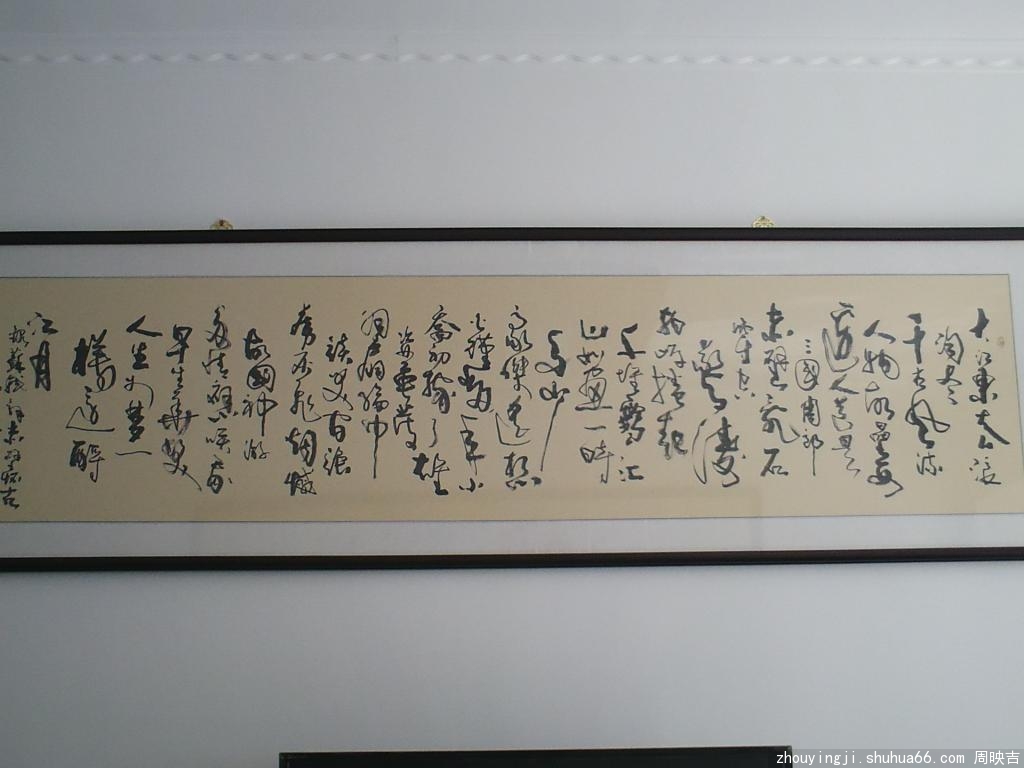 大江東去浪
淘尽
千古風流
人物故壘西
邊人道是
三國周郎
赤壁亂石
穿空
驚濤
拍岸捲起
千堆雪江
山如畫一時
多少
豪傑遙想
公瑾當年小
喬初嫁了雄
姿英發
羽扇綸巾
談笑間
灰飛烟滅
故國神游
多情應笑我
早生華髮
人生如夢一
樽還酹
江月
蘇軾詞赤壁懷古
zhouyingji.shuhua66.com 周映吉